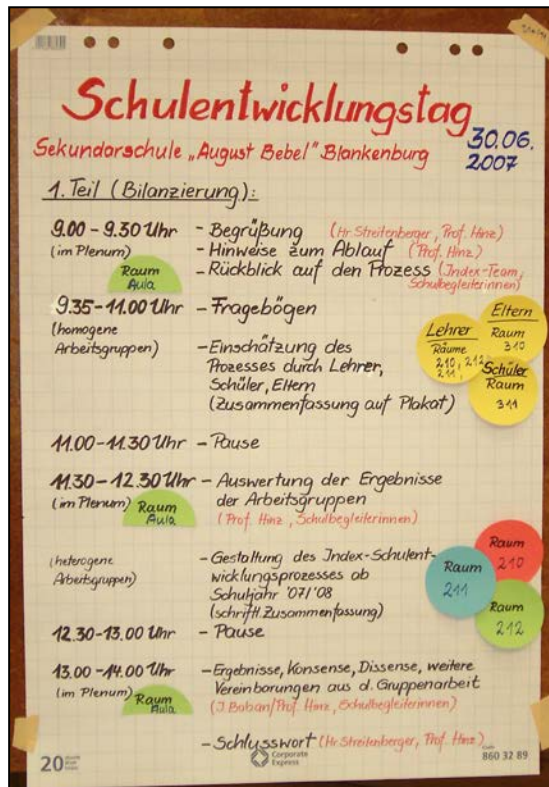 Schulentwicklungstag
30.06.
2007
Sekundarschule „August Bebel" Blankenburg
1. Teil (Bilanzierung):
9.00 - 9.30 Uhr - Begrüßung (Hr. Streitenberger, Prof. Hinz)
(im Plenum) - Hinweise zum Ablauf (Prof. Hinz)
Raum
Aula
- Rückblick auf den Prozess (Index-Team,
Schulbegleiterinnen)
9.35 - 11.00 Uhr - Fragebögen
(homogene
Arbeitsgruppen)
- Einschätzung des
Prozesses durch Lehrer,
Schüler, Eltern
(Zusammenfassung auf Plakat)
Eltern
Raum
310
Lehrer
Räume
210, 212
211,
Schüler
Raum
311
11.00 - 11.30 Uhr - Pause
11.30 - 12.30 Uhr - Auswertung der Ergebnisse
(im Plenum) der Arbeitsgruppen
Raum
Aula
(Prof. Hinz, Schulbegleiterinnen)
(heterogene
Arbeitsgruppen)
- Gestaltung des Index-Schulent-
wicklungsprozesses ab
Schuljahr '07/'08
(schriftl. Zusammenfassung)
Raum
210
Raum
211
Raum
212
12.30 - 13.00 Uhr - Pause
13.00 - 14.00 Uhr - Ergebnisse, Konsense, Dissense, weitere
(im Plenum) Vereinbarungen aus d. Gruppenarbeit
Raum
Aula
(J. Baban/Prof. Hinz, Schulbegleiterinnen)
- Schlusswort (Hr. Streitenberger, Prof. Hinz)
20
Corporate
Express
860 32 89